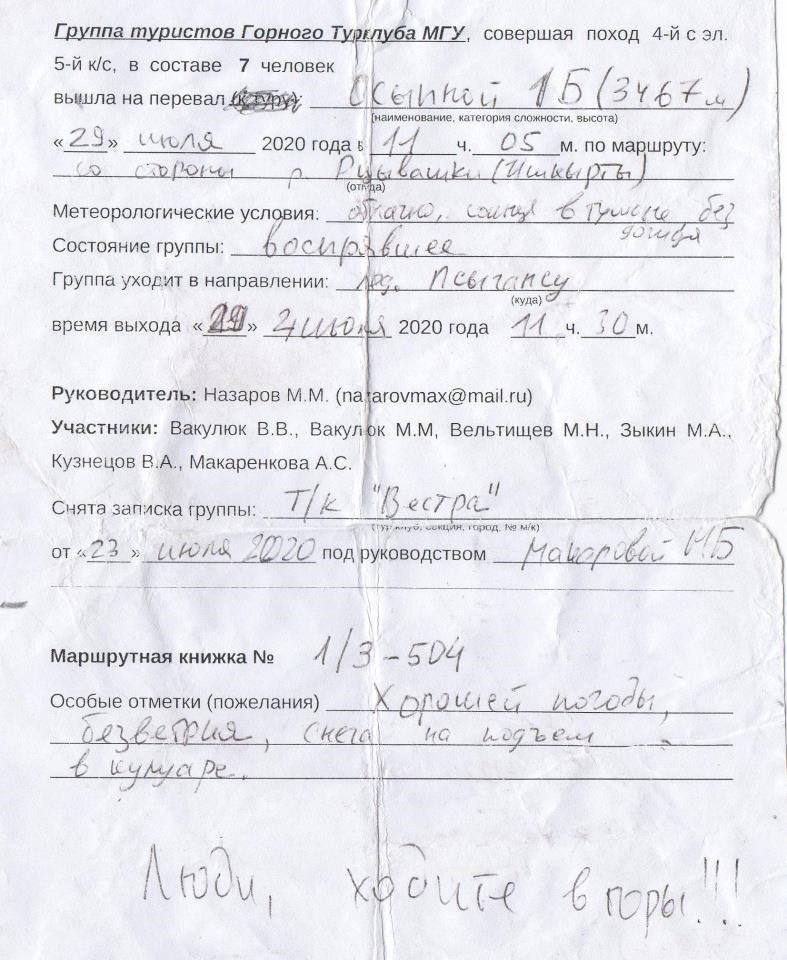 Группа туристов Горного Турклуба МГУ, совершая поход 4-й с эл.
5-й к/с, в составе 7 человек
вышла на перевал (к туру): Осыпной 1Б (3467 м)
(наименование, категория сложности, высота)
«29» июля 2020 года в 11 ч. 05 м. по маршруту:
со стороны р. Рцывашки (Ишкырты)
(откуда)
Метеорологические условия: облачно, солнце в тумане без
дождя
Состояние группы: воспрявшее
Группа уходит в направлении: лед. Псыгансу
(куда)
время выхода «29» июля 2020 года 11 ч. 30 м.
Руководитель: Назаров М.М. (nazarovmax@mail.ru)
Участники: Вакулюк В.В., Вакулюк М.М, Вельтищев М.Н., Зыкин М.А.,
Кузнецов В.А., Макаренкова А.С.
Снята записка группы: Т/к "Вестра"
(турклуб, секция, город, № м/к)
от «23» июля 2020 под руководством Макаровой МБ
Маршрутная книжка № 1/3-504
Особые отметки (пожелания) Хорошей погоды,
безветрия, снега на подъем
в кулуаре.
Люди, ходите в горы!!!